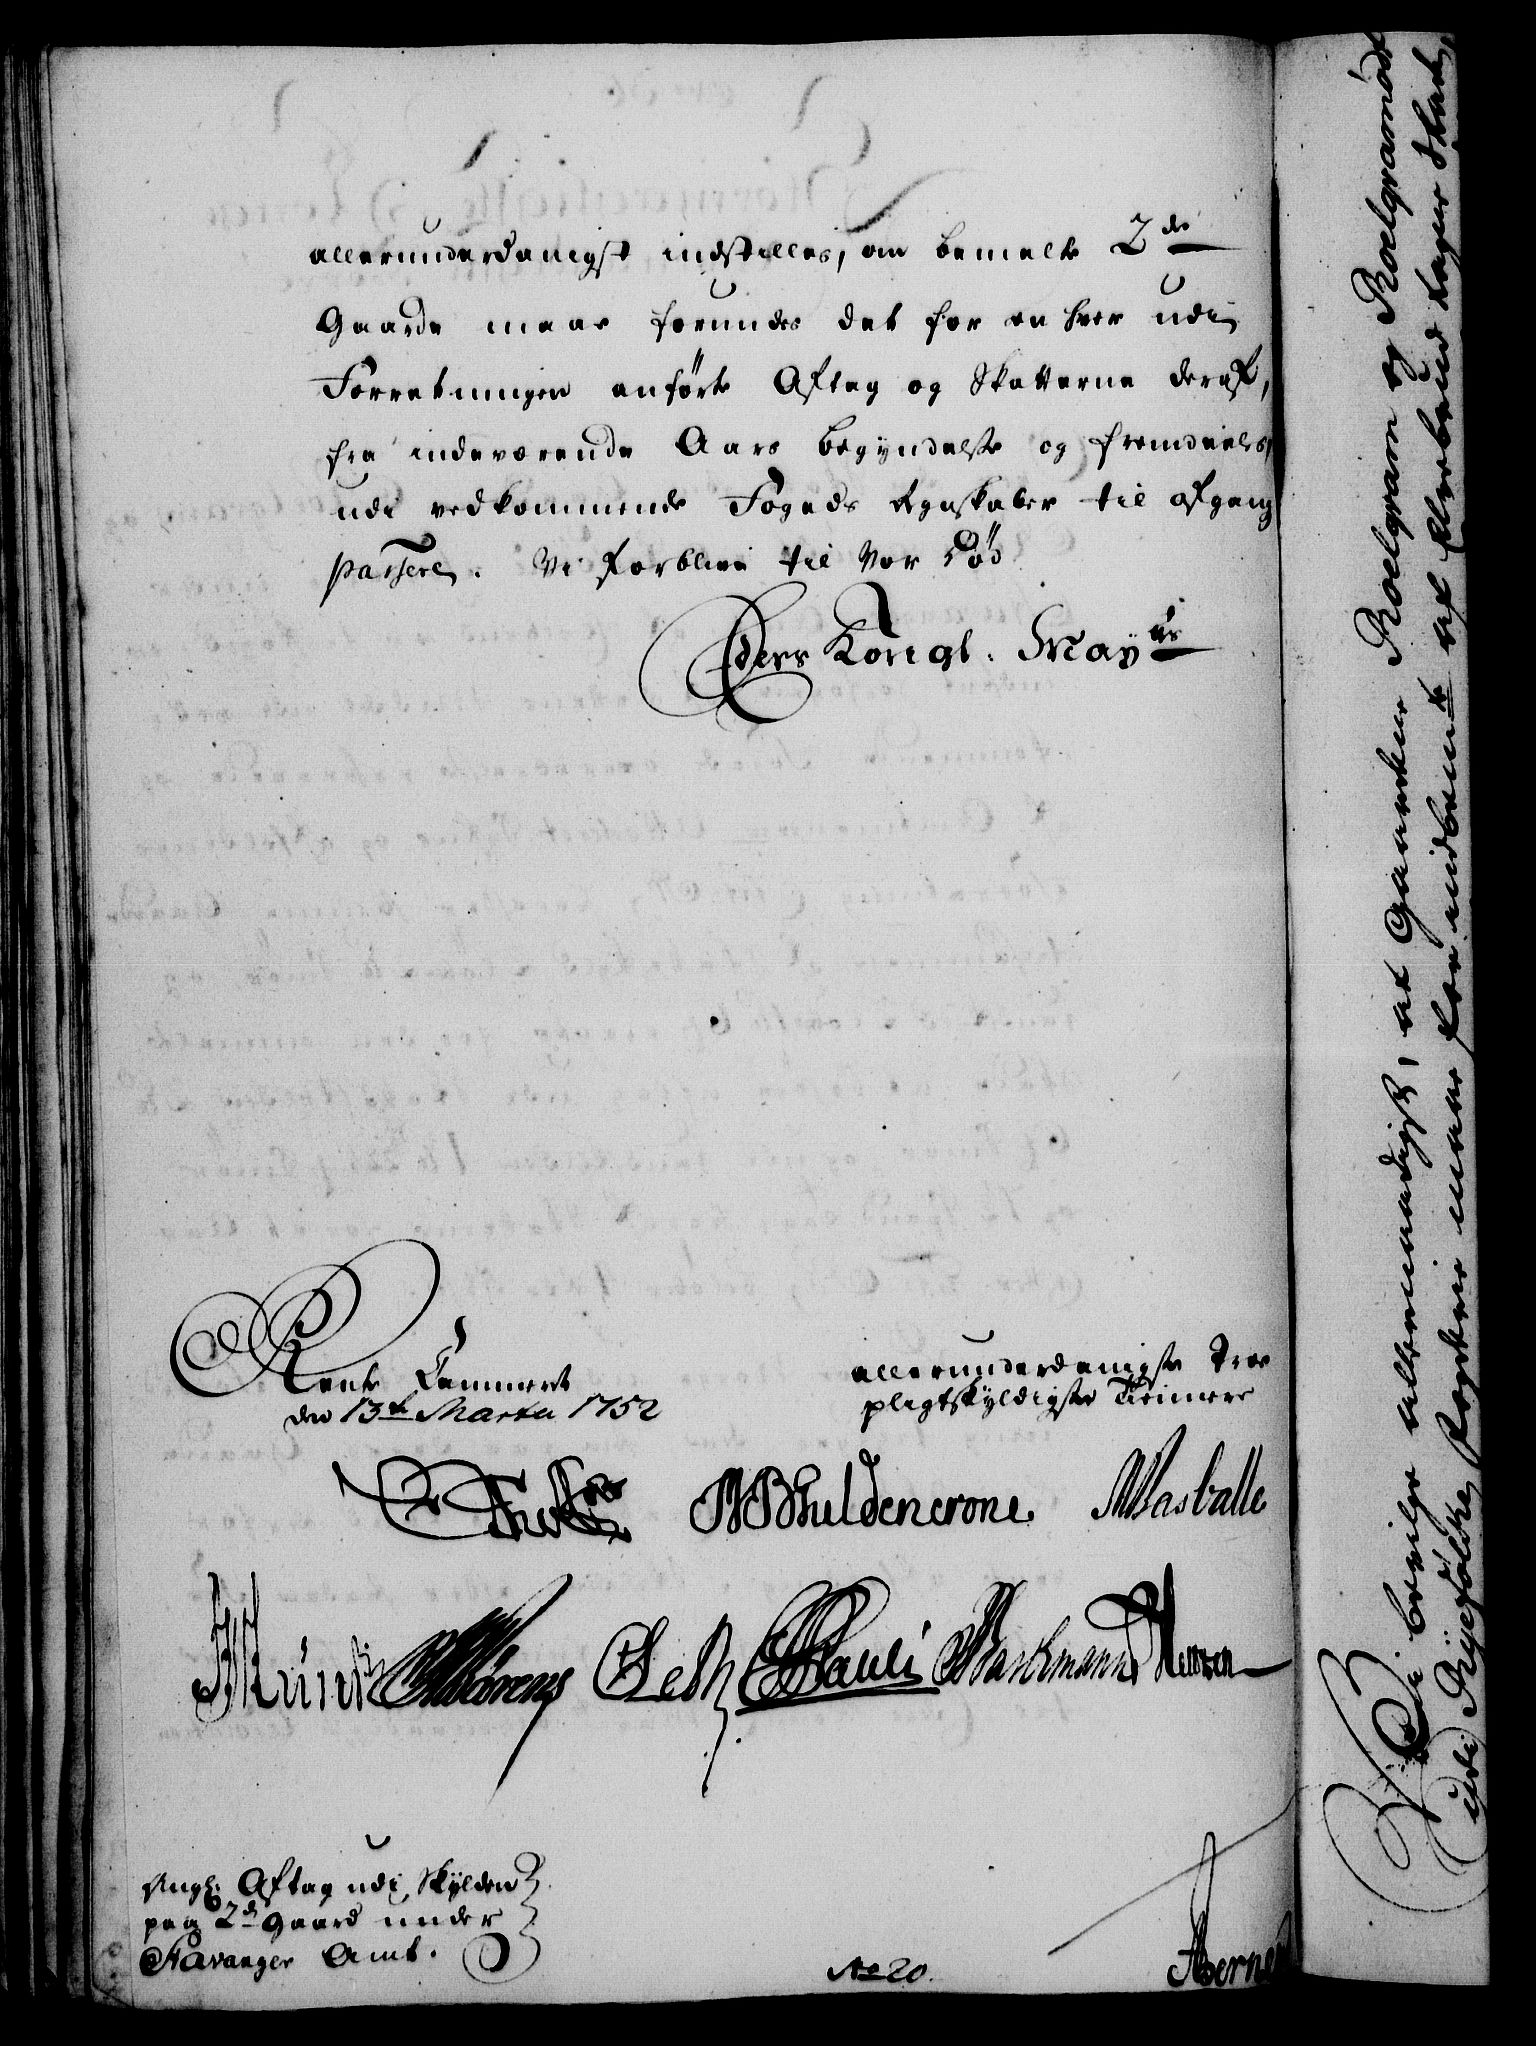 allerunderdanigst indstilles, om bemelte 2de
Gaarde maae forundes det for en hver udi
Forretningen anførte Aftag og Skatterne deraf,
fra indeværende Aars begyndelse og fremdeeles,
udi vedkommende Fogeds Regnskaber til afgang
passere. Vi forblive til Vor Død
Eders Kongl. Mayts
Rente Cammeret
den 13de Martii 1752
allerunderdanigste Troe
pligtskyldigste Tienere
Guldencrone
Basballe
Pauli
Barkmann
Angl: Aftag udi Skylden
paa 2de Gaard under
Stavanger Amt.
No 20.
Vi bevilge allernaadigst, at Gaardene Roelgram og Roelgramødt
udi Ryefølke Fogderie maae for umeldte af Elvebrud tagne Skade,